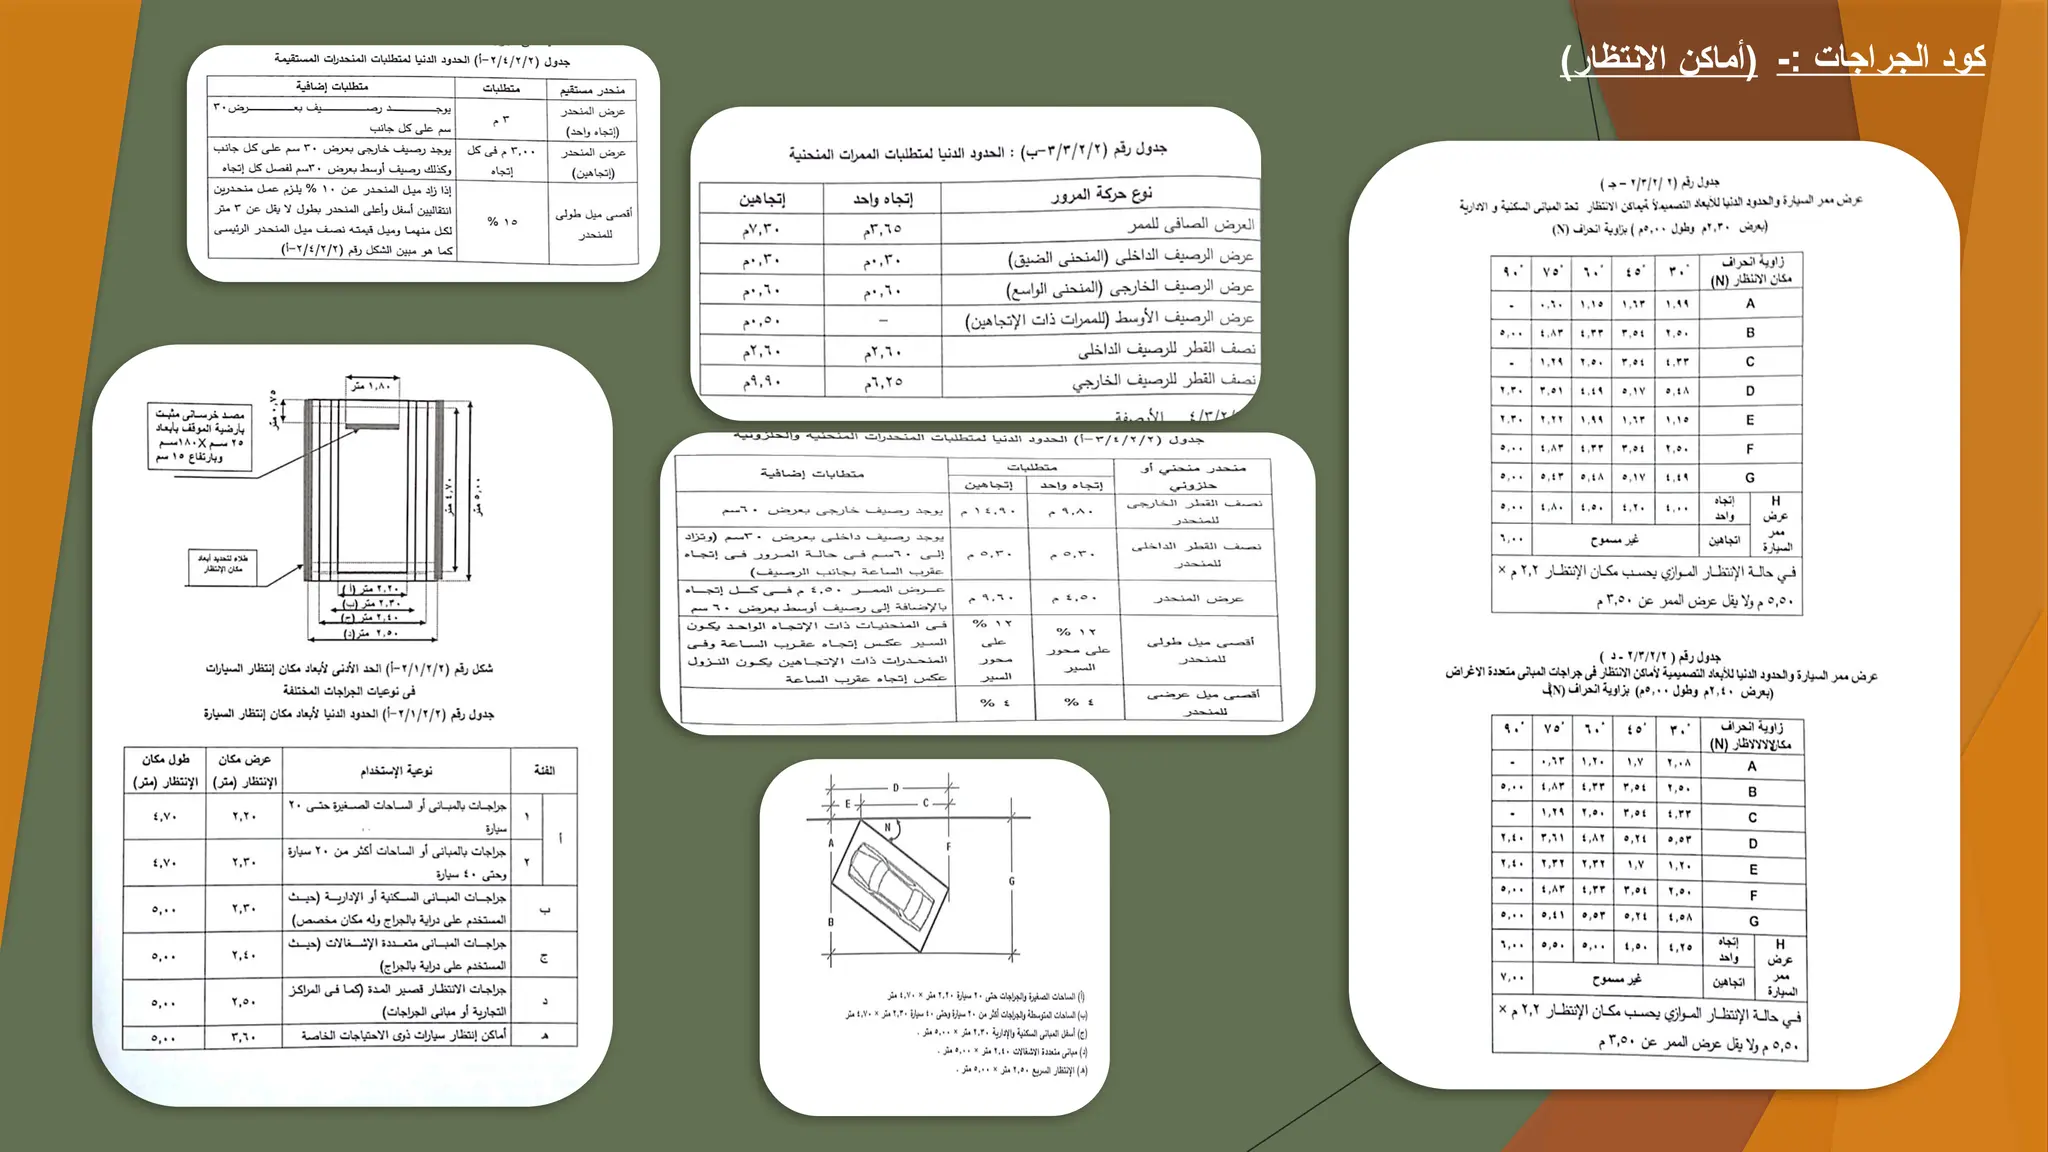 كود الجراجات :- (أماكن الانتظار)
جدول رقم (٢/٣/٢/٢ – جـ )
عرض ممر السيارة والحدود الدنيا للأبعاد التصميمية لأماكن الانتظار تحت المبانى السكنية و الادارية
(بعرض ٢,٣٠م وطول ٥,٠٠م ) بزاوية انحراف (N)
زاوية انحراف مكان الانتظار (N) ٣٠° ٤٥° ٦٠° ٧٥° ٩٠°
A ١,٩٩ ١,٦٣ ١,١٥ ٠,٦٠ -
B ٢,٥٠ ٣,٥٤ ٤,٣٣ ٤,٨٣ ٥,٠٠
C ٤,٣٣ ٣,٥٤ ٢,٥٠ ١,٢٩ -
D ٥,٤٨ ٥,١٧ ٤,٤٩ ٣,٥١ ٢,٣٠
E ١,١٥ ١,٦٣ ١,٩٩ ٢,٢٢ ٢,٣٠
F ٢,٥٠ ٣,٥٤ ٤,٣٣ ٤,٨٣ ٥,٠٠
G ٤,٤٩ ٥,١٧ ٥,٤٨ ٥,٤٣ ٥,٠٠
H عرض ممر السيارة
إتجاه واحد ٤,٠٠ ٤,٢٠ ٤,٥٠ ٤,٨٠ ٥,٠٠
اتجاهين غير مسموح ٦,٠٠
في حالة الإنتظار الموازي يحسب مكان الإنتظار ٢,٢ م ×
٥,٥٠ م ولا يقل عرض الممر عن ٣,٥٠ م
جدول رقم ( ٢/٣/٢/٢ - د )
عرض ممر السيارة والحدود الدنيا للأبعاد التصميمية لأماكن الانتظار فى جراجات المبانى متعددة الاغراض
(بعرض ٢,٤٠م وطول ٥,٠٠م) بزاوية انحراف (N)
زاوية انحراف (N) ٣٠° ٤٥° ٦٠° ٧٥° ٩٠°
A ٢,٠٨ ١,٧ ١,٢٠ ٠,٦٣ -
B ٢,٥٠ ٣,٥٤ ٤,٣٣ ٤,٨٣ ٥,٠٠
C ٤,٣٣ ٣,٥٤ ٢,٥٠ ١,٢٩ -
D ٥,٥٣ ٥,٢٤ ٤,٨٢ ٣,٦١ ٢,٤٠
E ١,٢٠ ١,٧ ٢,٣٢ ٢,٣٢ ٢,٤٠
F ٢,٥٠ ٣,٥٤ ٤,٣٣ ٤,٨٣ ٥,٠٠
G ٤,٥٨ ٥,٢٤ ٥,٥٣ ٥,٤١ ٥,٠٠
H عرض ممر السيارة
إتجاه واحد ٤,٢٥ ٤,٥٠ ٥,٠٠ ٥,٥٠ ٦,٠٠
اتجاهين غير مسموح ٧,٠٠
في حالة الإنتظار الموازي يحسب مكان الإنتظار ٢,٢ م ×
٥,٥٠ م ولا يقل عرض الممر عن ٣,٥٠ م
جدول رقم (٣/٣/٢/٢-ب) : الحدود الدنيا لمتطلبات الممرات المنحنية
نوع حركة المرور إتجاه واحد إتجاهين
العرض الصافى للممر ٣,٦٥م ٧,٣٠م
عرض الرصيف الداخلى (المنحنى الضيق) ٠,٣٠م ٠,٣٠م
عرض الرصيف الخارجى (المنحنى الواسع) ٠,٦٠م ٠,٦٠م
عرض الرصيف الأوسط (للممرات ذات الإتجاهين) – ٠,٥٠م
نصف القطر للرصيف الداخلى ٢,٦٠م ٢,٦٠م
نصف القطر للرصيف الخارجي ٦,٢٥م ٩,٩٠م
٤/٣/٢/ الأرصفة
جدول (٣/٤/٢/٢-أ) الحدود الدنيا لمتطلبات المنحدرات المنحنية والحلزونية
منحدر منحني أو حلزوني متطلبات متطابات إضافية
إتجاه واحد إتجاهين
نصف القطر الخارجى للمنحدر ٩,٨٠ م ١٤,٩٠ م يوجد رصيف خارجى بعرض ٦٠سم
نصف القطر الداخلى للمنحدر ٥,٣٠ م ٥,٣٠ م يوجد رصيف داخلى بعرض ٣٠سم (وتزاد
إلى ٦٠سم فى حالة المرور فى إتجاه
عقرب الساعة بجانب الرصيف)
عرض المنحدر ٤,٥٠ م ٩,٦٠ م عرض الممر ٤,٥٠ م فى كل إتجاه
بالإضافة إلى رصيف أوسط بعرض ٦٠ سم
أقصى ميل طولى للمنحدر ١٢ % على محور السير ١٢ % على محور السير
فى المنحنيات ذات الإتجاه الواحد يكون
السير عكس إتجاه عقرب الساعة وفى
المنحدرات ذات الإتجاهين يكون النزول
عكس إتجاه عقرب الساعة
أقصى ميل عرضى للمنحدر ٤ % ٤ %
D
E C
N
A F
G
B
(أ) الساحات الصغيرة والجراجات حتى ٢٠ سيارة ٢,٢٠ متر × ٤,٧٠ متر
(ب) الساحات المتوسطة والجراجات أكثر من ٢٠ سيارة وحتى ٤٠ سيارة ٢,٣٠ متر × ٤,٧٠ متر
(ج) أسفل المبانى السكنية والإدارية ٢,٣٠ متر × ٥,٠٠ متر .
(د) مبانى متعددة الاشغالات ٢,٤٠ متر × ٥,٠٠ متر .
(هـ) الإنتظار السريع ٢,٥٠ متر × ٥,٠٠ متر .
جدول (٢/٤/٢/٢-أ) الحدود الدنيا لمتطلبات المنحدرات المستقيمة
منحدر مستقيم متطلبات متطلبات إضافية
عرض المنحدر (إتجاه واحد) ٣ م يوجد رصيف بعرض ٣٠
سم على كل جانب
عرض المنحدر (إتجاهين) ٣,٠٠ م فى كل إتجاه يوجد رصيف خارجى بعرض ٣٠ سم على كل جانب
وكذلك رصيف أوسط بعرض ٣٠سم لفصل كل إتجاه
أقصى ميل طولى للمنحدر ١٥ % إذا زاد ميل المنحدر عن ١٠ % يلزم عمل منحدرين
انتقاليين أسفل وأعلى المنحدر بطول لا يقل عن ٣ متر
لكل منهما وميل قيمته نصف ميل المنحدر الرئيسى
كما هو مبين الشكل رقم (٢/٤/٢/٢-أ)
١,٨٠ متر
٠,٧٥ متر
مصد خرسانى مثبت
بأرضية الموقف بأبعاد
٢٥ سم X ١٨٠سم
وبارتفاع ١٥ سم
٤,٧٠ متر
٥,٠٠ متر
طلاء لتحديد أبعاد
مكان الإنتظار
٢,٢٠ متر (أ)
٢,٣٠ متر (ب)
٢,٤٠ متر (ج)
٢,٥٠ متر (د)
شكل رقم (٢/١/٢/٢-أ) الحد الأدنى لأبعاد مكان إنتظار السيارات
فى نوعيات الجراجات المختلفة
جدول رقم (٢/١/٢/٢-أ) الحدود الدنيا لأبعاد مكان إنتظار السيارة
الفئة نوعية الإستخدام عرض مكان الإنتظار (متر) طول مكان الإنتظار (متر)
أ ١ جراجات بالمبانى أو الساحات الصغيرة حتى ٢٠ سيارة ٢,٢٠ ٤,٧٠
٢ جراجات بالمبانى أو الساحات أكثر من ٢٠ سيارة وحتى ٤٠ سيارة ٢,٣٠ ٤,٧٠
ب جراجات المبانى السكنية أو الإدارية (حيث المستخدم على دراية بالجراج وله مكان مخصص) ٢,٣٠ ٥,٠٠
ج جراجات المبانى متعددة الإشغالات (حيث المستخدم على دراية بالجراج) ٢,٤٠ ٥,٠٠
د جراجات الانتظار قصير المدة (كما فى المراكز التجارية أو مبانى الجراجات) ٢,٥٠ ٥,٠٠
هـ أماكن إنتظار سيارات ذوى الاحتياجات الخاصة ٣,٦٠ ٥,٠٠